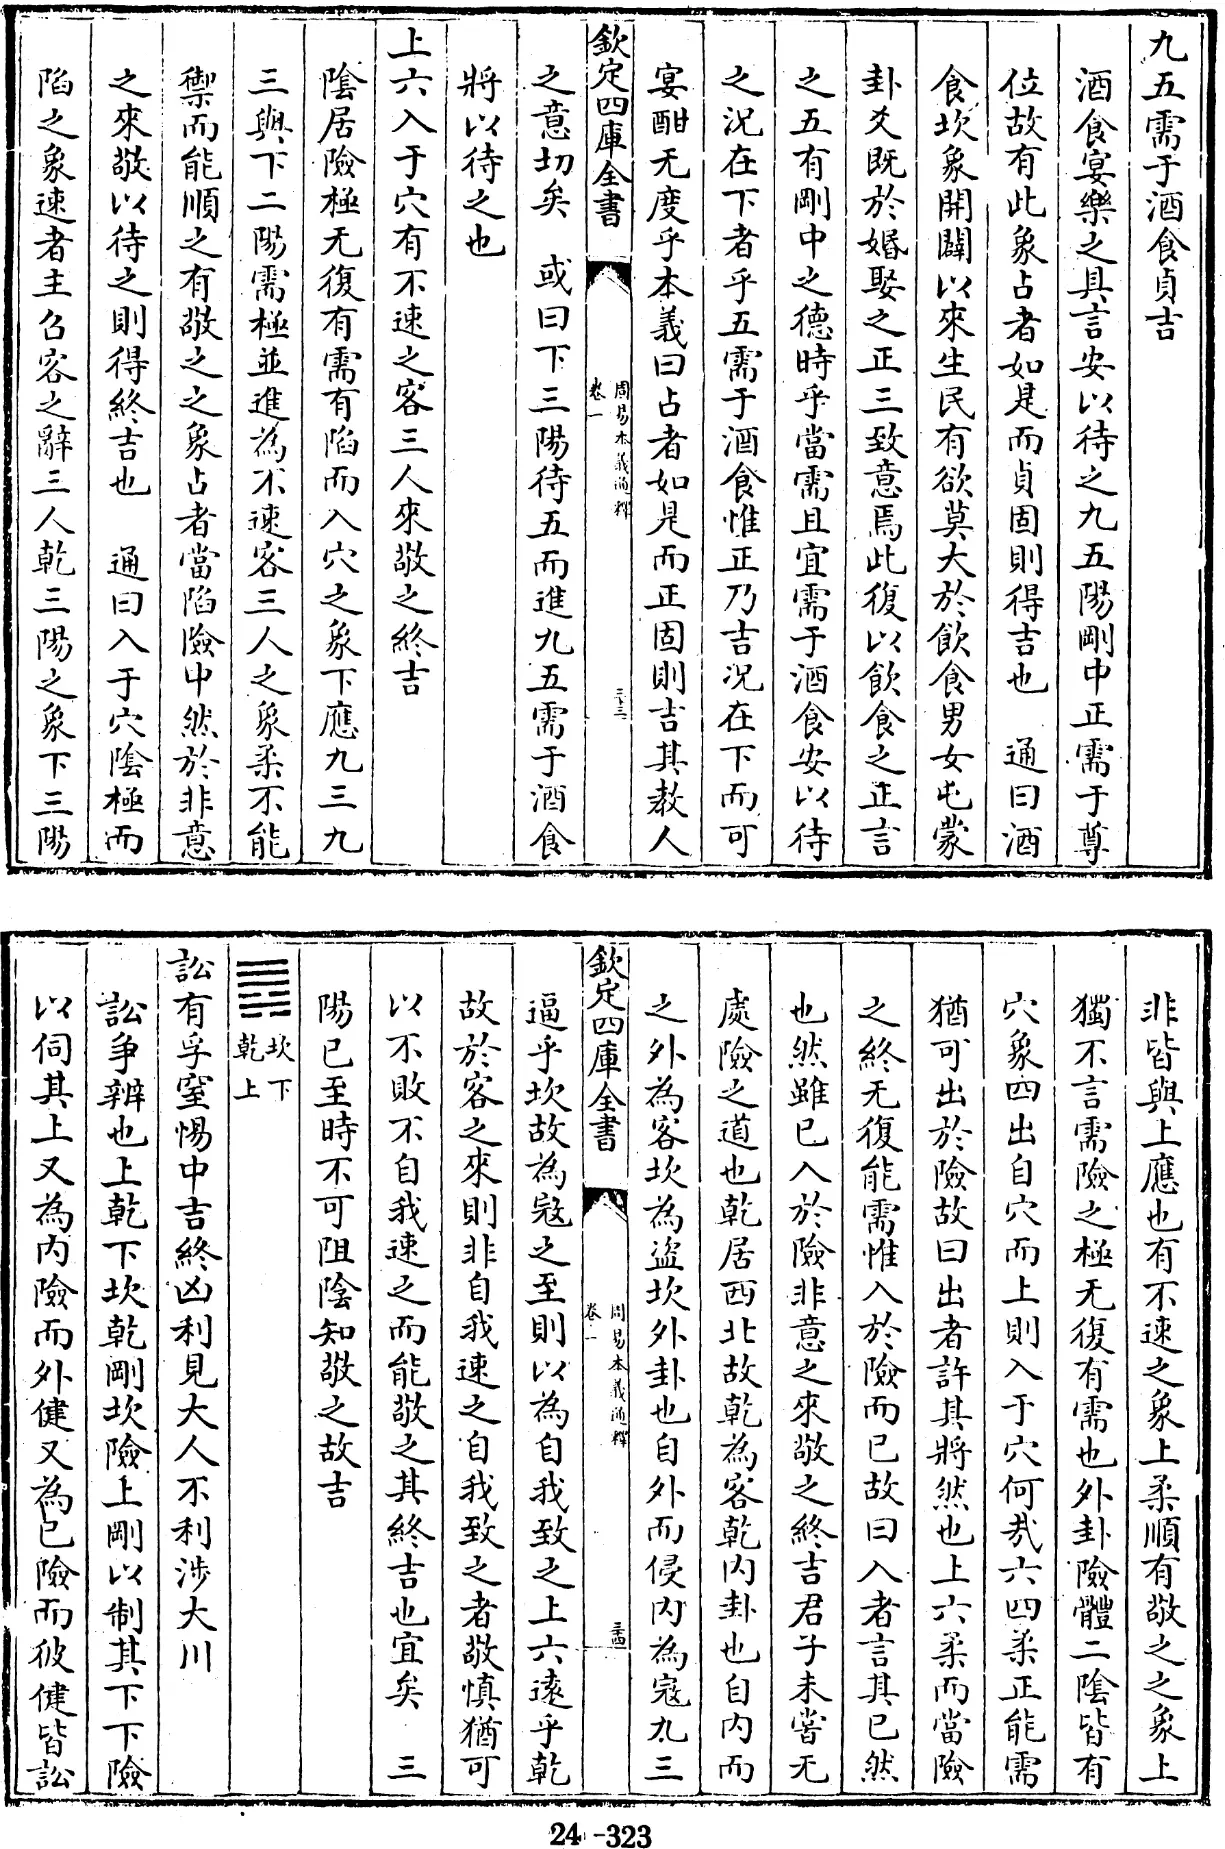 九五需于酒食貞吉
酒食宴樂之具言安以待之九五陽剛中正需于尊
位故有此象占者如是而貞固則得吉也　通曰酒
食坎象開闢以來生民有欲莫大於飲食男女屯蒙
卦爻既於婚娶之正三致意焉此復以飲食之正言
之五有剛中之德時乎當需且宜需于酒食安以待
之況在下者乎五需于酒食惟正乃吉況在下而可
宴酣无度乎本義曰占者如是而正固則吉其教人
欽定四庫全書
周易本義通釋
卷一
三十三
之意切矣　或曰下三陽待五而進九五需于酒食
將以待之也
上六入于穴有不速之客三人來敬之終吉
陰居險極无復有需有陷而入穴之象下應九三九
三與下二陽需極並進為不速客三人之象柔不能
禦而能順之有敬之之象占者當陷險中然於非意
之來敬以待之則得終吉也　通曰入于穴陰極而
陷之象速者主召客之辭三人乾三陽之象下三陽
非皆與上應也有不速之象上柔順有敬之之象上
獨不言需險之極无復有需也外卦險體二陰皆有
穴象四出自穴而上則入于穴何㢤六四柔正能需
猶可出於險故曰出者許其將然也上六柔而當險
之終无復能需惟入於險而已故曰入者言其已然
也然雖已入於險非意之來敬之終吉君子未嘗无
處險之道也乾居西北故乾為客乾内卦也自内而
之外為客坎為盜坎外卦也自外而侵内為寇九三
欽定四庫全書
周易本義通釋
卷一
三十四
逼乎坎故為寇之至則以為自我致之上六遠乎乾
故於客之來則非自我速之自我致之者敬慎猶可
以不敗不自我速之而能敬之其終吉也宜矣　三
陽已至時不可阻陰知敬之故吉
䷅坎下乾上
訟有孚窒惕中吉終凶利見大人不利涉大川
訟争辨也上乾下坎乾剛坎險上剛以制其下下險
以伺其上又為内險而外健又為已險而彼健皆訟
24-323